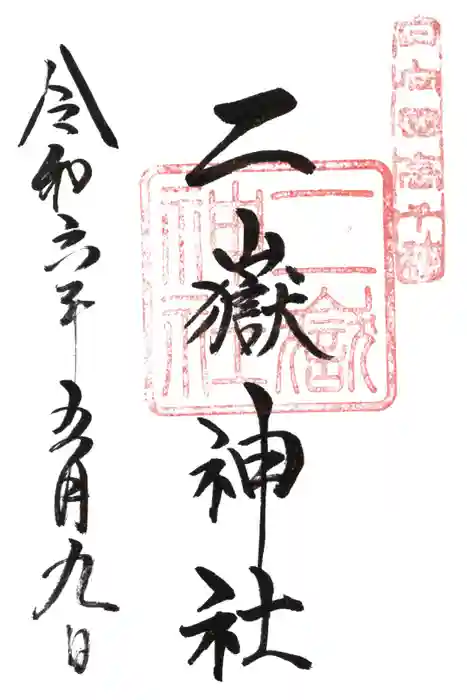 二嶽神社
二嶽神社
令和六年五月九日